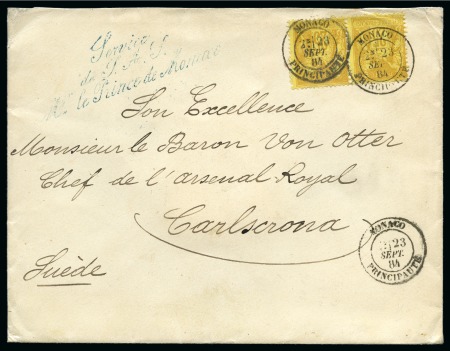 Service
de S. A. S.
M. le Prince de Monaco
MONACO
23
SEPT.
84
PRINCIPAUTÉ
MONACO
23
SEPT.
84
PRINCIPAUTÉ
Son Excellence
Monsieur le Baron Von Otter
Chef de l'arsenal Royal
Carlscrona
Suède
MONACO
23
SEPT.
84
PRINCIPAUTÉ